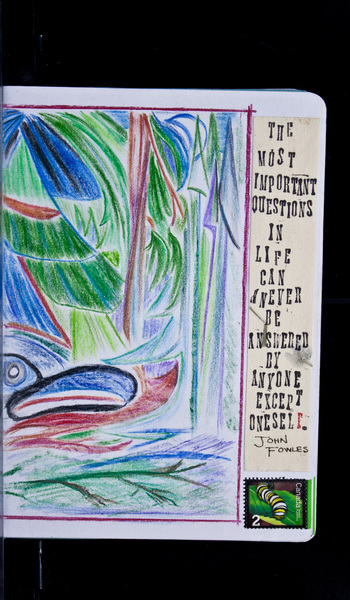 THE
MOST
IMPORTANT
QUESTIONS
IN
LIFE
CAN
NEVER
BE
ANSWERED
BY
ANYONE
EXCEPT
ONESELF.
JOHN
FOWLES
Canada
2